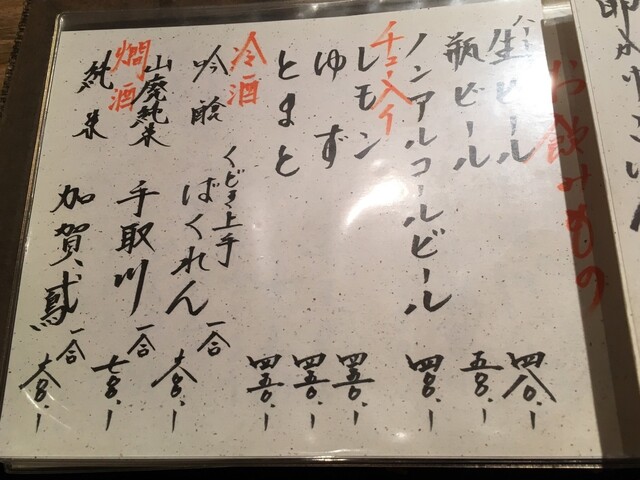 お飲みもの
生ビール 四八〇.ー
瓶ビール 五〇〇.ー
ノンアルコールビール 四〇〇.ー
チューハイ
レモン 四五〇.ー
ゆず 四五〇.ー
とまと 四五〇.ー
冷酒
くどき上手
吟醸 ばくれん 一合
山廃純米 手取川 一合 七〇〇.ー
燗酒
純米 加賀鳶 一合